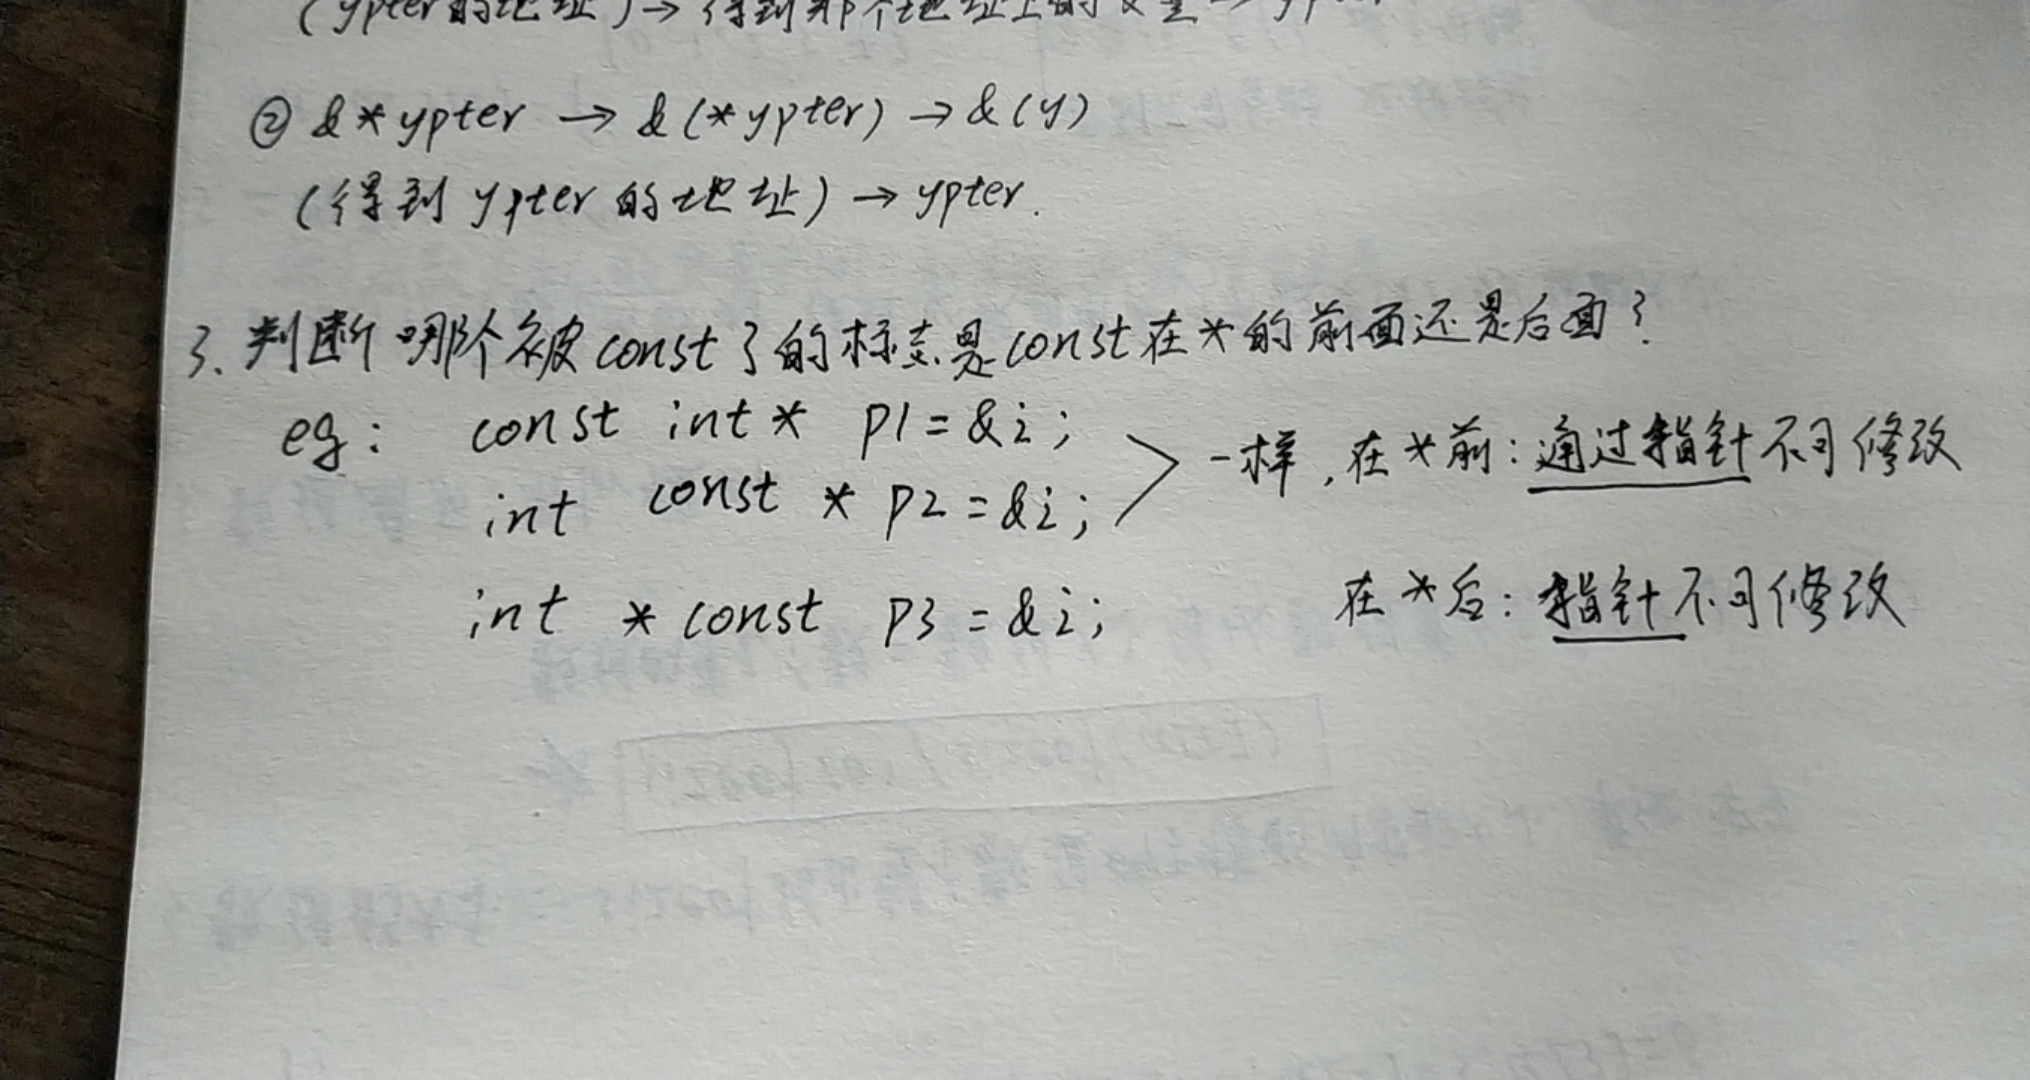 (ypter的地址)→得到那个地址上的变量→yp
② &*ypter → &(*ypter) → &(y)
(得到ypter的地址) → ypter.
3、判断哪个被const了的标志是const在*的前面还是后面？
eg: const int * p1 = &i;
int const * p2 = &i;
一样,在*前:通过指针不可修改
int * const p3 = &i; 在*后:指针不可修改